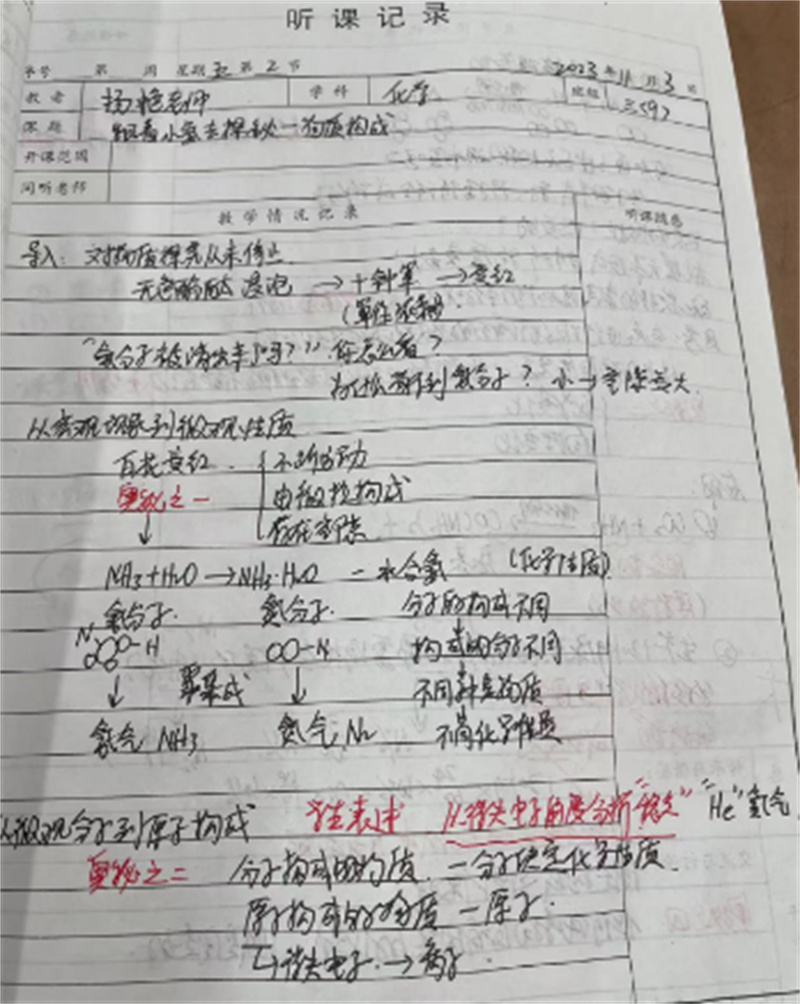 听课记录
序号 第 周 星期五第2节 2023年11月3日
教者 杨艳老师 学科 化学 班级
课题 跟着小氨去探秘—物质构成
开课范围
同听老师
教学情况记录 听课随感
导入: 对物质探究从未停止
无色酚酞浸泡 → 十钟罩 → 变红
"氨分子被请出车门吗?" 你怎么看?
为何抓到氨分子? 小→空隙变大
从宏观现象到微观性质
百花变红 不断运动
奥秘之一 由微粒构成
↓ 存在空隙
NH3+H2O→NH3·H2O — 水合氨 (化学性质)
氨分子. 氮分子. 分子的构成不同
N -H OO-N 构成的分子不同
↓ 聚集成 ↓ 不同种类物质
氨气 NH3 氮气 N2 不同化学性质
从微观分子到原子构成 注表述 从得失电子角度分析"稳定" "He"氦气
奥秘之二 分子构成的物质 — 分子决定化学性质.
原子构成的物质 — 原子.
↳得失电子. → 离子.